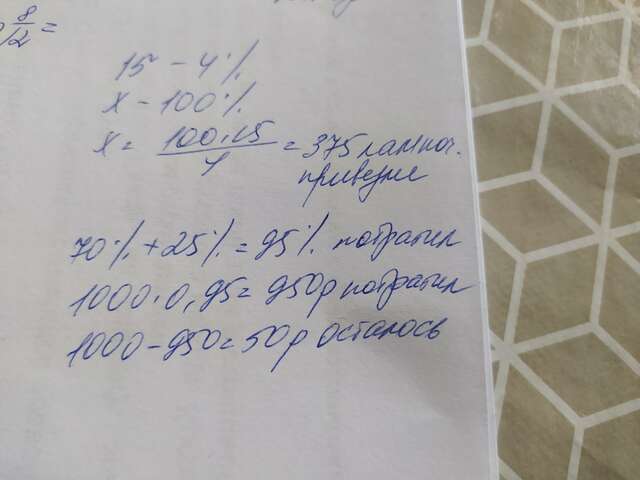 8/12 =
15 - 4%
x - 100%
x = 100·15/4 = 375 лампоч.
привезли
70% + 25% = 95% потратил
1000·0,95 = 950р потратил
1000 - 950 = 50р осталось